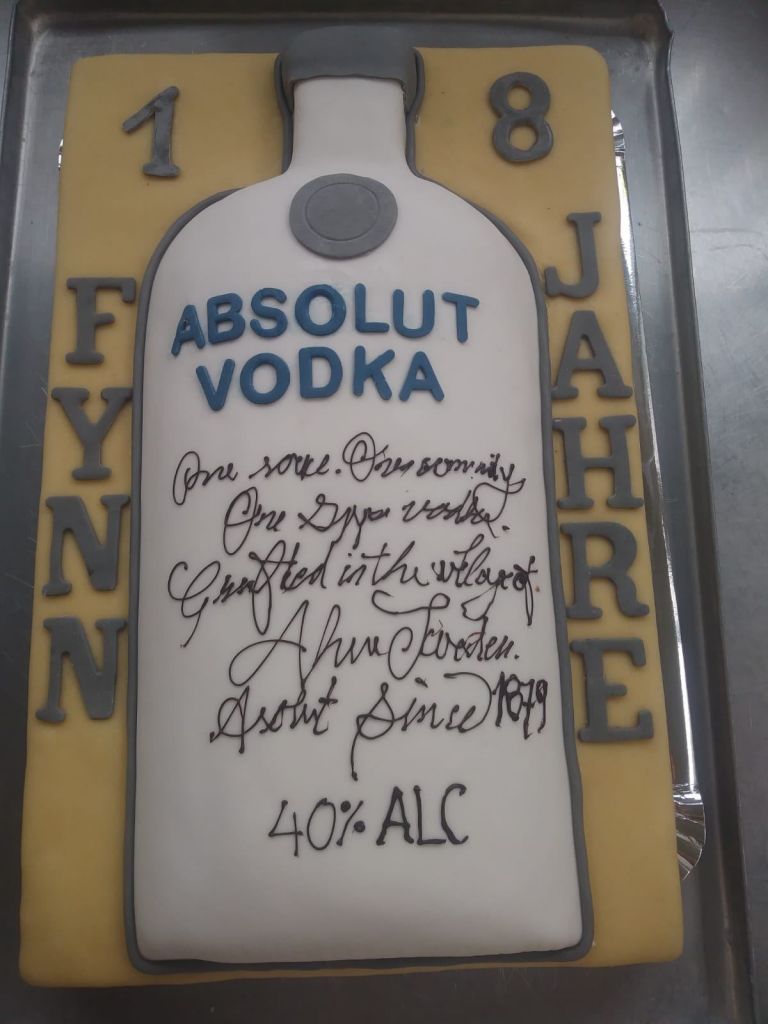 18
FYNN
JAHRE
ABSOLUT
VODKA
One sorce. One
One vodka.
Crafted in the vilage of
Ahus Sweden.
Asolut Since 1879
40% ALC